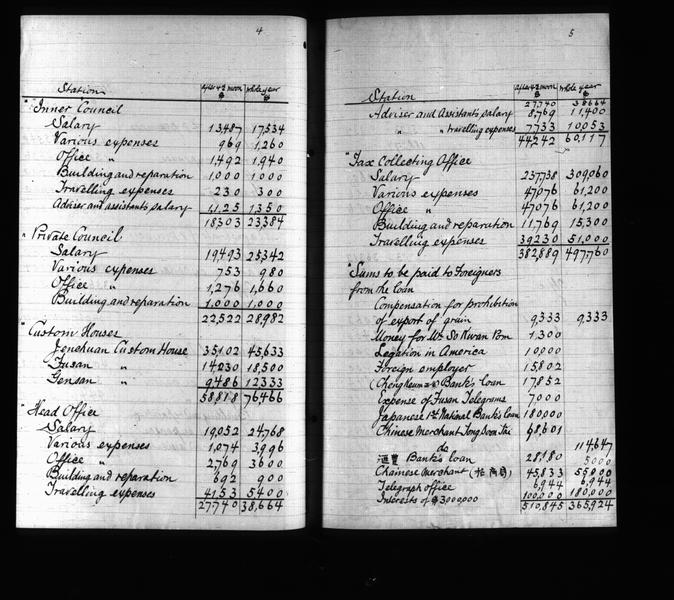 4
Station after 4th moon $ whole year $
" Inner Council
Salary 13,487 17,534
Various expenses 969 1,260
Office " 1,492 1,940
Building and reparation 1,000 1,000
Travelling expenses 230 300
Adviser and assistant's salary 1,125 1,350
18303 23384
" Private Council
Salary 19,493 25,342
Various expenses 753 980
Office " 1,276 1,660
Building and reparation 1,000 1,000
22,522 28,982
" Custom Houses
Jenchuan Custom House 35,102 45,633
Fusan " 14230 18,500
Gensan " 9,486 12333
58818 76466
" Head Office
Salary 19,052 24,768
Various expenses 1,074 3,996
Office " 2,769 3600
Building and reparation 692 900
Travelling expenses 4153 5400
27740 38,664
5
Station after 4th moon $ whole year $
27,740 38664
Adviser and Assistant's salary 8,769 11,400
" " travelling expenses 7733 10053
44242 60,117
" Tax Collecting Office
Salary 237,738 309,060
Various expenses 47,076 61,200
Office " 47076 61,200
Building and reparation 11,769 15,300
Travelling expenses 39230 51,000
382,889 497,760
" Sums to be paid to Foreigners
from the loan
Compensation for prohibition
of export of grain 9,333 9,333
Money for Mr So Kwan Pom 1,300
Legation in America 10,000
Foreign employer 15,802
Bank's loan 17852
Expense of Fusan Telegrams 7,000
Japanese 1st National Bank's loan 180,000
Chinese Merchant Tong Soon Tai 68,601
do 114647
滙豐 Bank's loan 28,180 5000
Chainese Merchant 45,833 55,000
Telegraph office 6,944 6,944
Interests of $3,000,000 100,000 180,000
510,845 365,924